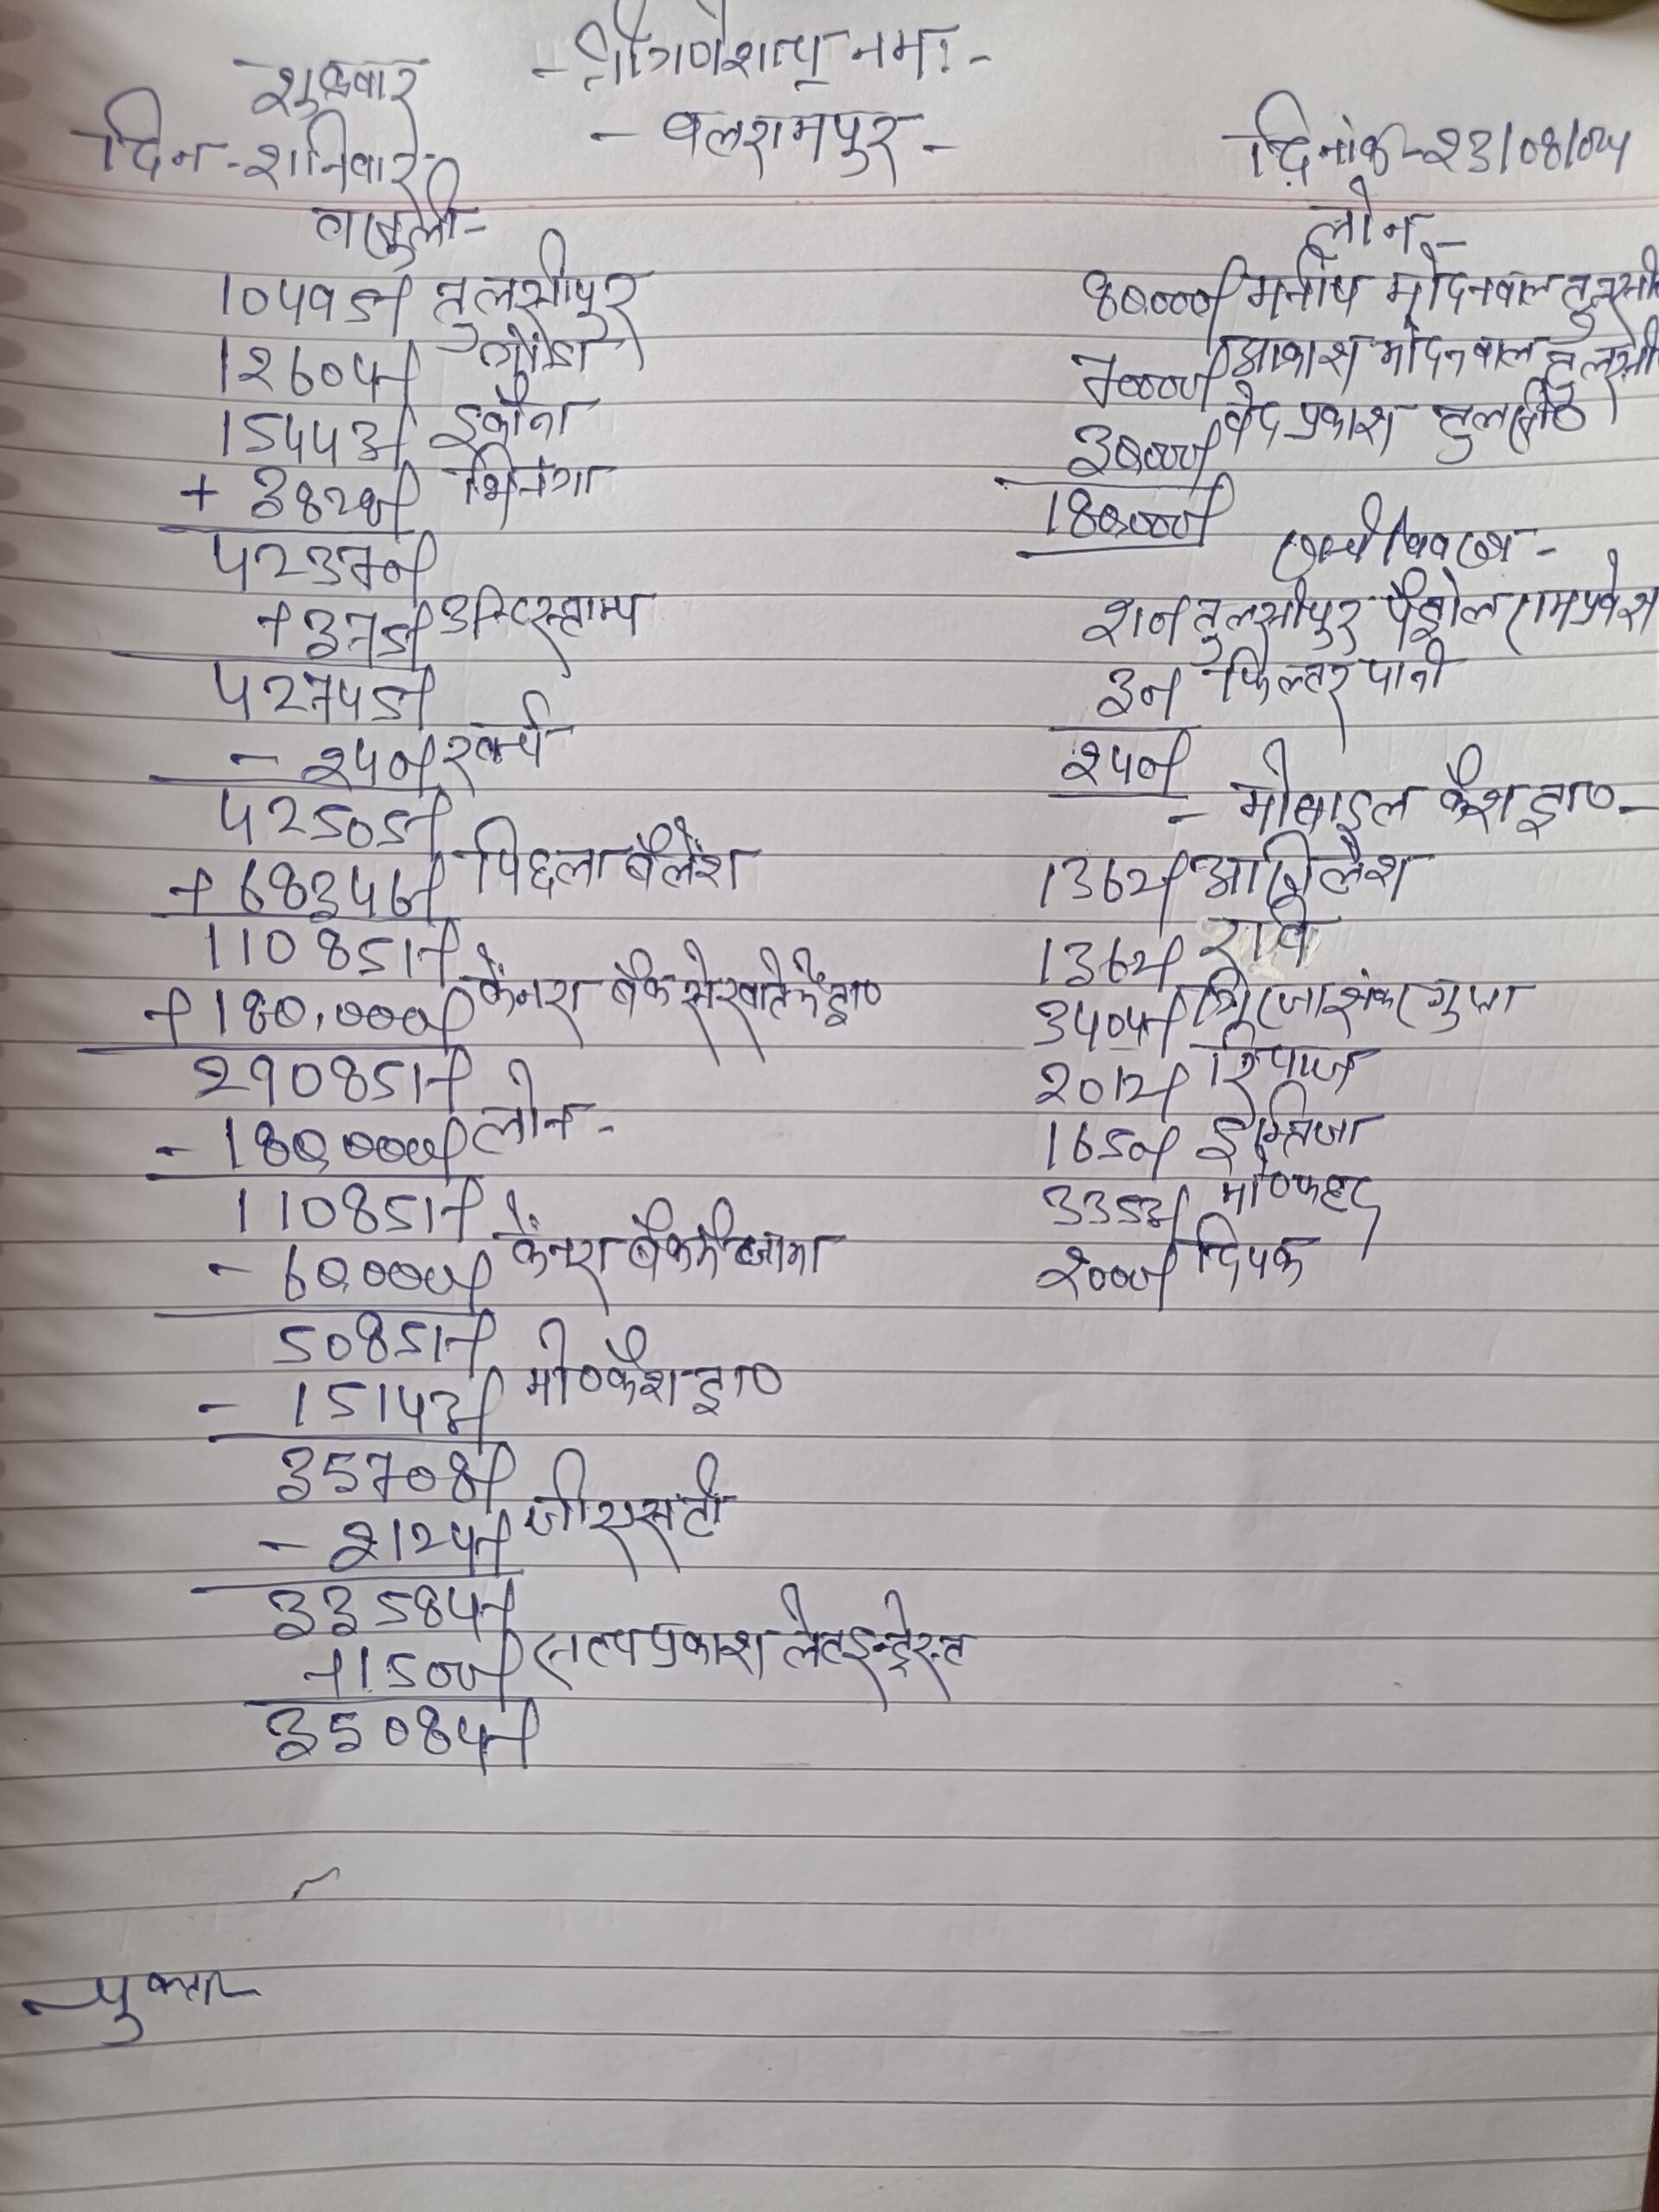 -श्री गणेशाय नमः-
शुक्रवार
-बलरामपुर-
दिन-शनिवार
दिनांक-23/08/024
वसूली-
10495/- तुलसीपुर
12604/- गोंडा
15443/- इकौना
+ 3828/- भिनगा
42370/-
+375/- उ०टि०स्टाम्प
42745/-
- 240/- खर्च
42505/-
+ 68346/- पिछला बैलेंश
110851/-
+ 180,000/- केनरा बैंक से खाते कै० ट्रा०
290851/-
- 180,000/- लोन-
110851/-
- 60,000/- केनरा बैंक में जमा
50851/-
- 15143/- मो०कैश ट्रा०
35708/-
- 2124/- जीएसटी
33584/-
+1500/- सत्यप्रकाश लेट इन्ट्रेस्ट
35084/-
लोन-
80,000/- मनीष मोदनवाल तुलसी
70000/- आकाश मोदनवाल तुलसी
30,000/- वेद प्रकाश तुलसी०
180,000/-
खर्च विवरण-
210/- तुलसीपुर पैट्रोल रामप्रवेश
30/- फिल्टर पानी
240/-
- मोबाइल कैश ट्रा०-
1362/- अखिलेश
1362/- रवि
3404/- गिरजाशंकर गुप्ता
2012/- रियाज
1650/- इम्तियाज
3353/- मो०फहद
2000/- दिपक